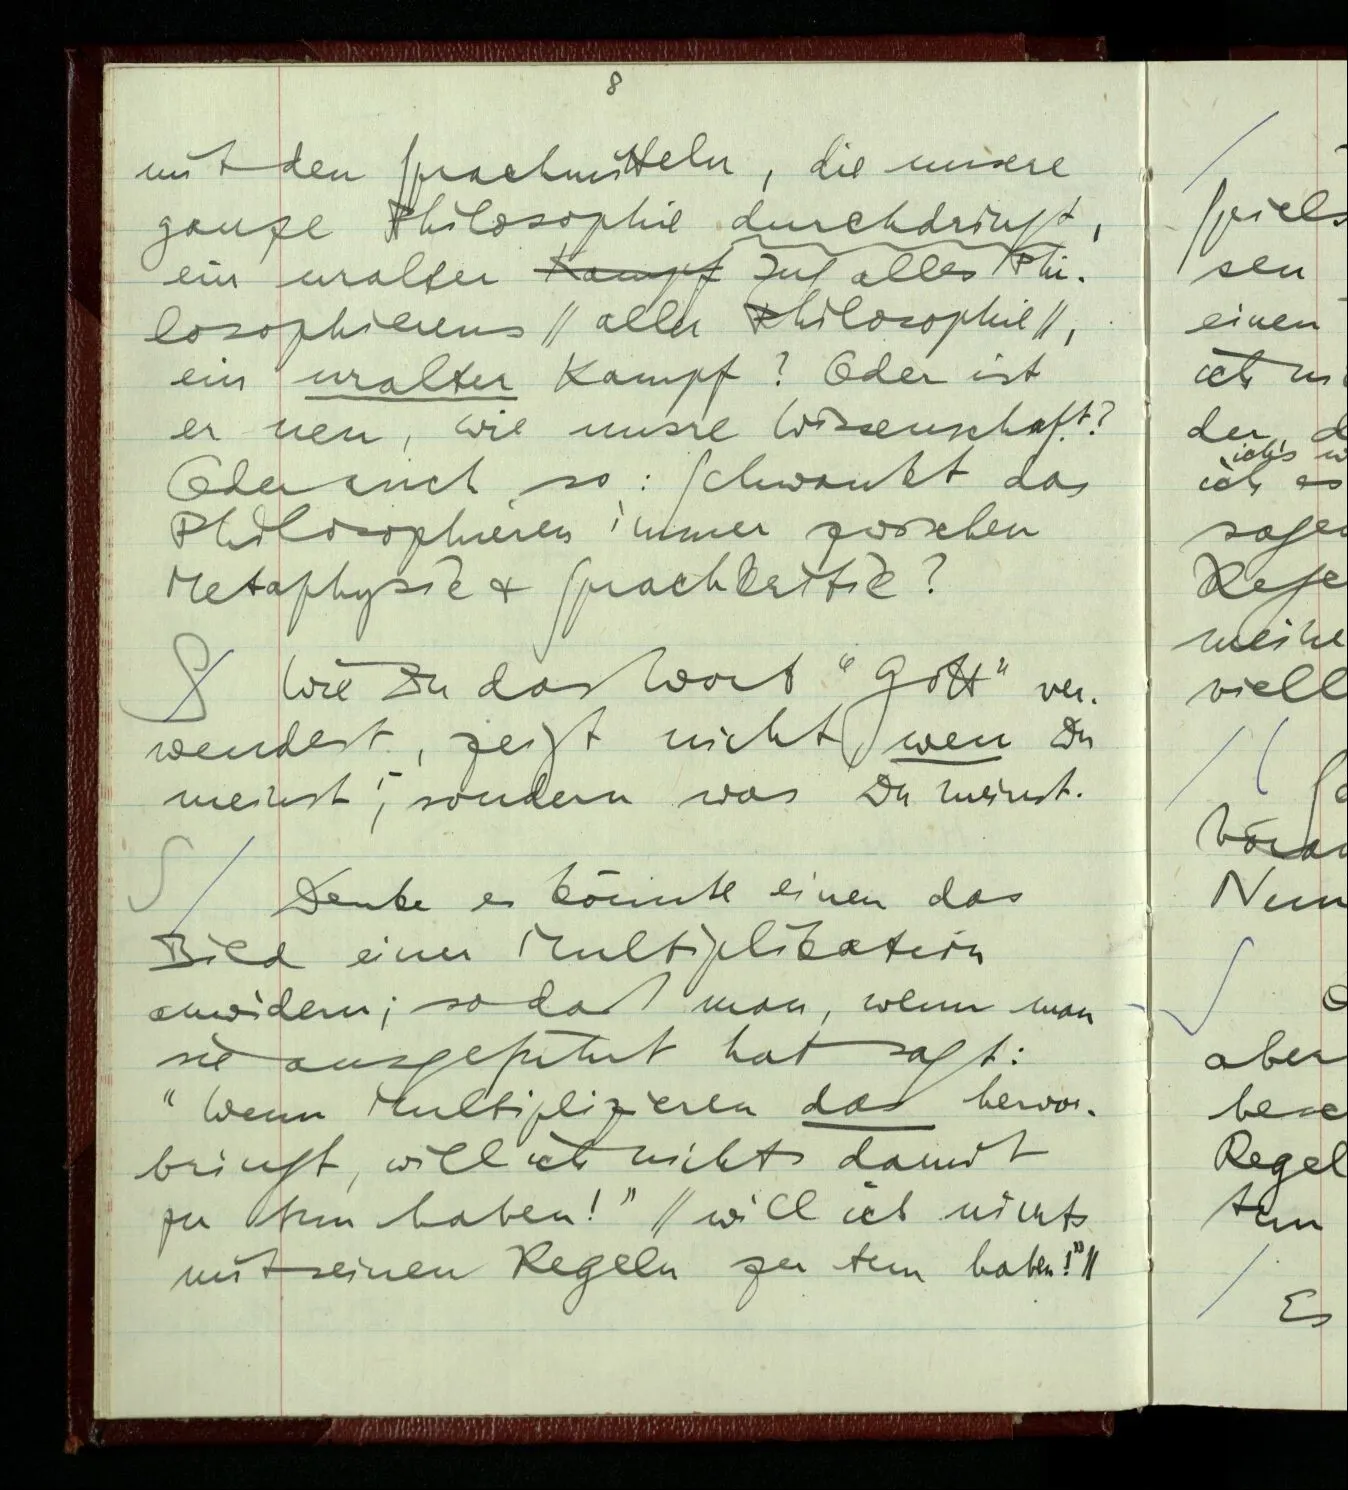 8
mit den Sprachmitteln, die unsere
ganze Philosophie durchdringt,
ein uralter Kampf Zug alles Phi-
losophierens // aller Philosophie //,
ein uralter Kampf? Oder ist
er neu, wie unsre Wissenschaft?
Oder auch so: Schwankt das
Philosophieren immer zwischen
Metaphysik & Sprachkritik?
S / Wie Du das Wort "Gott" ver-
wendest, zeigt nicht, wen Du
meinst, sondern was Du meinst.
S / Denke es könnte einen das
Bild einer Multiplikation
anwidern; so daß man, wenn man
sie ausgeführt hat sagt:
"Wenn Multiplizieren das hervor-
bringt, will ich nichts damit
zu tun haben!" // will ich nichts
mit seinen Regeln zu tun haben!" //
Spiels
sen
einen
ich
der, d
ich's w
ich es
sagen
Rege
meine
viell
Nun
aber
besc
Regel
tun
Es